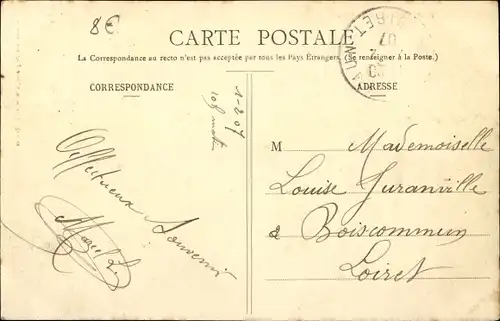 8€
CARTE POSTALE
La Correspondance au recto n'est pas acceptée par tous les Pays Étrangers. (Se renseigner à la Poste.)
CORRESPONDANCE
ADRESSE
1-2-07
10h matin
Affectueux Souvenir
Marcel L.
M Mademoiselle
Louise Juranville
à Boiscommun
Loiret